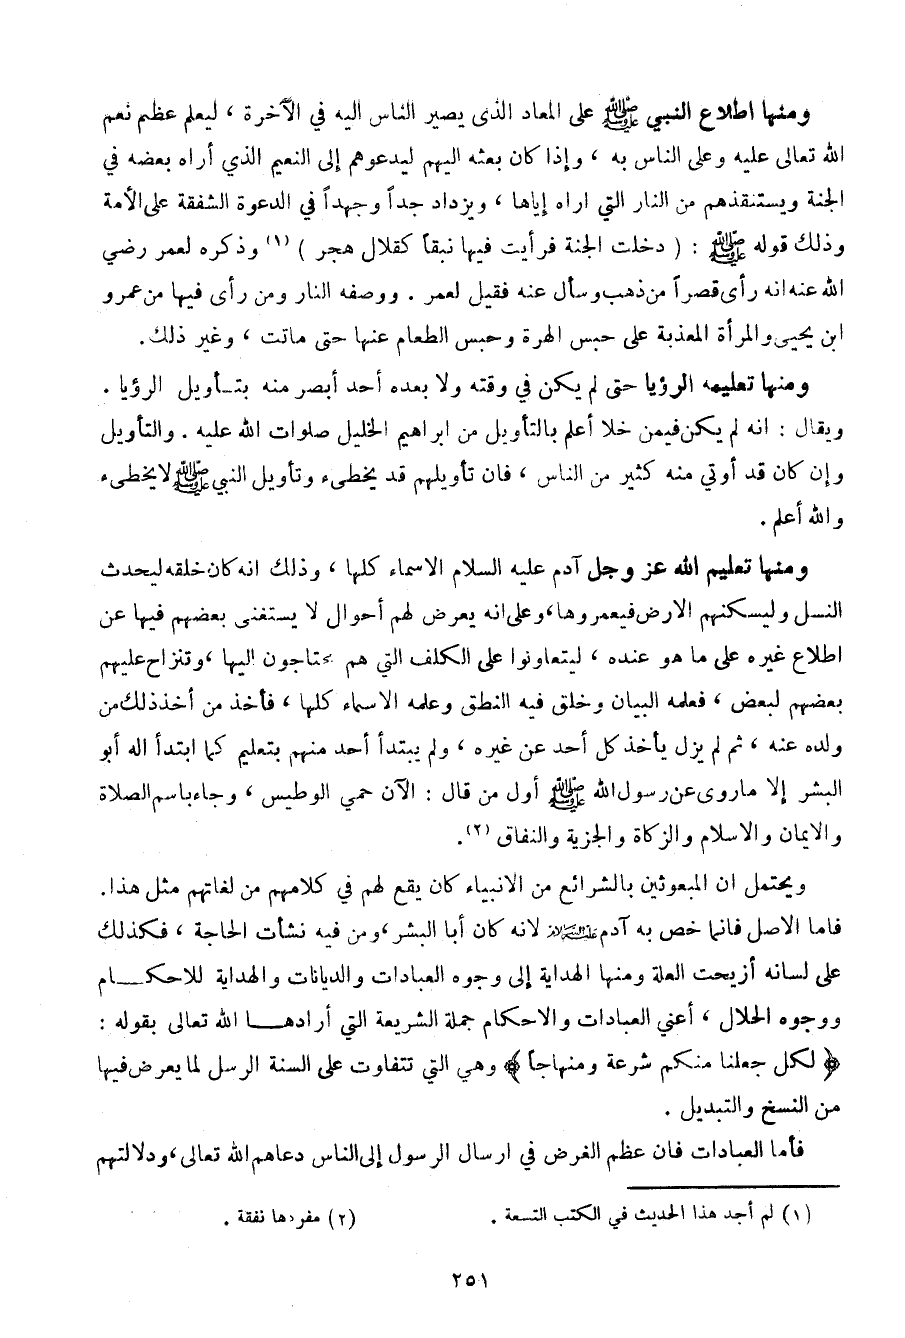 ومنها اطلاع النبي ﷺ على المعاد الذى يصير الناس اليه في الآخرة ، ليعلم عظم نعم
الله تعالى عليه وعلى الناس به ، وإذا كان بعثه اليهم ليدعوهم إلى النعيم الذي أراه بعضه في
الجنة ويستنقذهم من النار التي اراه إياها ، ويزداد جداً وجهداً في الدعوة الشفقة على الأمة
وذلك قوله ﷺ : ( دخلت الجنة فرأيت فيها نبقاً كقلال هجر ) (١) وذكره لعمر رضي
الله عنه انه رأى قصراً من ذهب وسأل عنه فقيل لعمر . ووصفه النار ومن رأى فيها من عمرو
ابن يحيى والمرأة المعذبة على حبس الهرة وحبس الطعام عنها حتى ماتت ، وغير ذلك.
ومنها تعليمه الرؤيا حتى لم يكن في وقته ولا بعده أحد أبصر منه بتـأويل الرؤيا .
ويقال : انه لم يكن فيمن خلا أعلم بالتأويل من ابراهيم الخليل صلوات الله عليه . والتأويل
وإن كان قد أوتي منه كثير من الناس ، فان تأويلهم قد يخطىء وتأويل النبي ﷺ لا يخطىء
والله أعلم .
ومنها تعليم الله عز وجل آدم عليه السلام الاسماء كلها ، وذلك انه كان خلقه ليحدث
النسل وليسكنهم الارض فيعمروها ، وعلى انه يعرض لهم أحوال لا يستغنى بعضهم فيها عن
اطلاع غيره على ما هو عنده ، ليتعاونوا على الكلف التي هم يحتاجون اليها ، وتنزاح عليهم
بعضهم لبعض ، فعلمه البيان وخلق فيه النطق وعلمه الاسماء كلها ، فأخذ من أخذ ذلك من
ولده عنه ، ثم لم يزل يأخذ كل أحد عن غيره ، ولم يبتدأ أحد منهم بتعليم كما ابتدأ اله أبو
البشر إلا ماروى عن رسول الله ﷺ أول من قال : الآن حمي الوطيس ، وجاء باسم الصلاة
والايمان والاسلام والزكاة والجزية والنفاق (٢).
ويحتمل ان المبعوثين بالشرائع من الانبياء كان يقع لهم في كلامهم من لغاتهم مثل هذا.
فاما الاصل فانما خص به آدم عليه السلام لانه كان أبا البشر ، ومن فيه نشأت الحاجة ، فكذلك
على لسانه أزيحت العلة ومنها الهداية إلى وجوه العبادات والديانات والهداية للاحكـــام
ووجوه الحلال ، أعني العبادات والاحكام جملة الشريعة التي أرادهـــا الله تعالى بقوله :
﴿ لكل جعلنا منكم شرعة ومنهاجاً ﴾ وهي التي تتفاوت على السنة الرسل لما يعرض فيها
من النسخ والتبديل .
فأما العبادات فان عظم الغرض في ارسال الرسول إلى الناس دعاهم الله تعالى ، ودلالتهم
(١) لم أجد هذا الحديث في الكتب التسعة . (٢) مفردها نفقة .
٢٥١